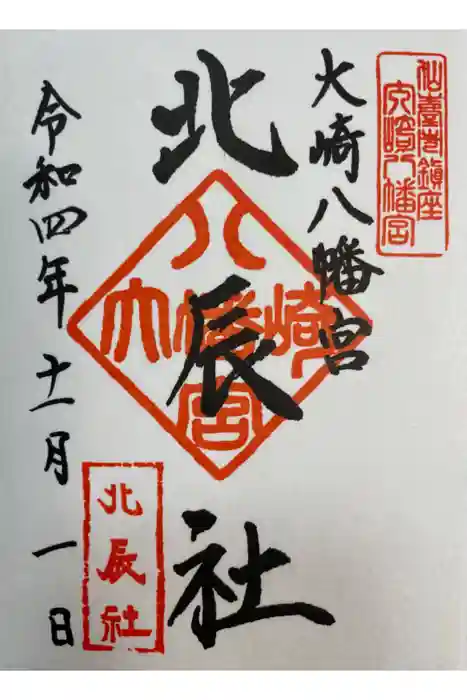 仙臺総鎮座
大崎八幡宮
大崎八幡宮
北辰社
八
大幡崎
宮
北辰社
令和四年十一月一日